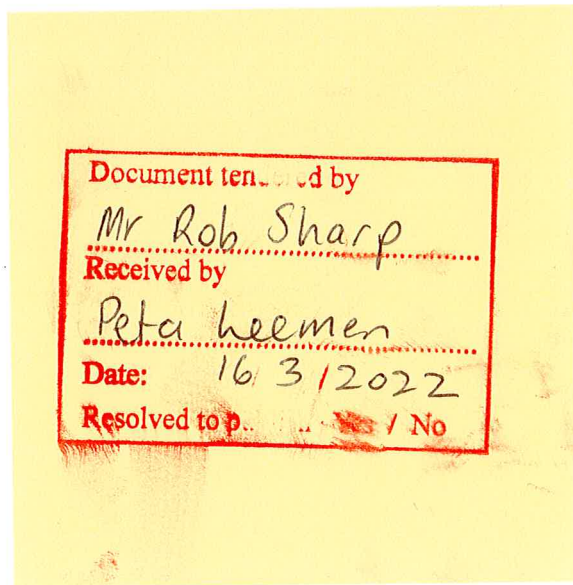 Document tendered by
Mr Rob Sharp
Received by
Peta Leemen
Date: 16/3/2022
Resolved to / No